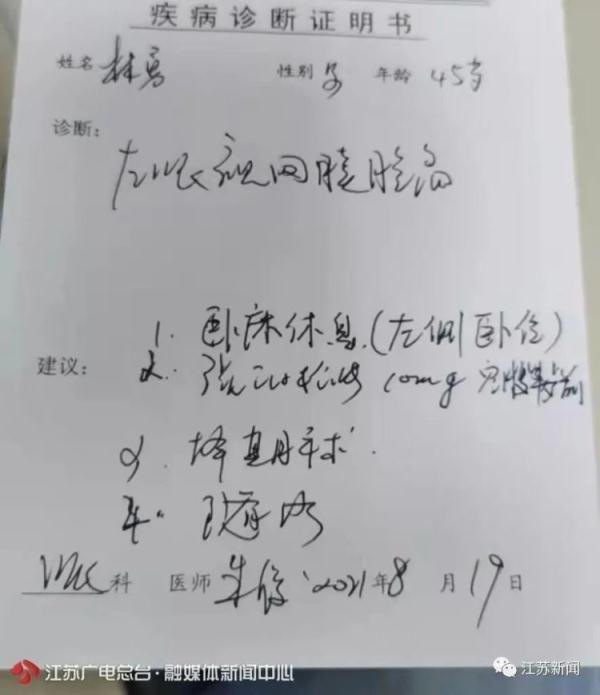 疾病诊断证明书
姓名 林勇 性别 男 年龄 45岁
诊断:
左眼视网膜脱离
建议:
1. 卧床休息(左侧卧位)
2. 10mg
择期手术
随诊
眼科 医师 朱 2021年8月19日
江苏广电总台·融媒体新闻中心
江苏新闻